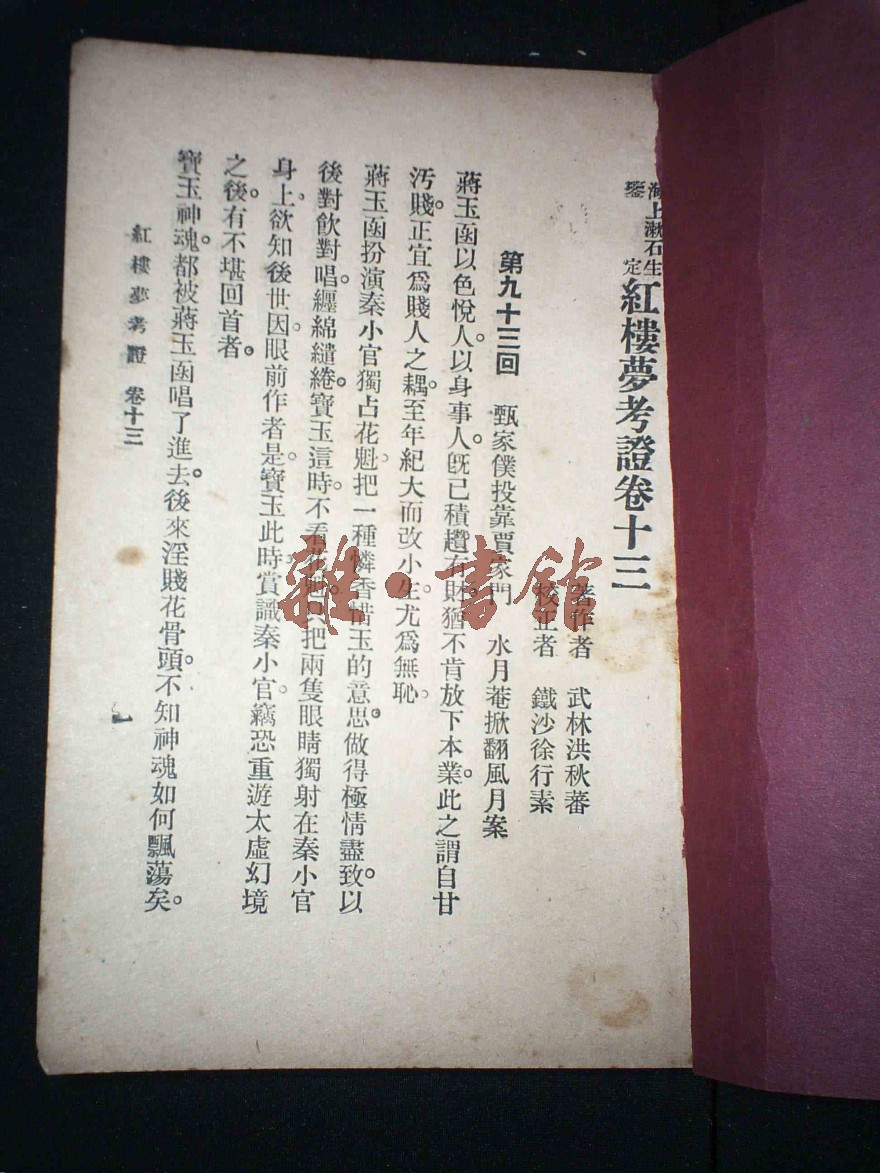 海上漱石生
鑒定
紅樓夢考證卷十三
著作者　武林洪秋蕃
校正者　鐵沙徐行素
第九十三回　甄家僕投靠賈家門　水月菴掀翻風月案
蔣玉函以色悅人。以身事人。既已積趲有財。猶不肯放下本業。此之謂自甘
汚賤。正宜爲賤人之耦。至年紀大而改小生。尤爲無恥。
蔣玉函扮演秦小官獨占花魁。把一種憐香惜玉的意思。做得極情盡致。以
後對飲對唱。纏綿繾綣。寶玉這時。不看花魁。只把兩隻眼睛獨射在秦小官
身上。欲知後世因。眼前作者是。寶玉此時賞識秦小官。竊恐重遊太虛幻境
之後。有不堪回首者。
寶玉神魂。都被蔣玉函唱了進去。後來淫賤花骨頭。不知神魂如何飄蕩矣。
紅樓夢考證　卷十三
一
雜·書館